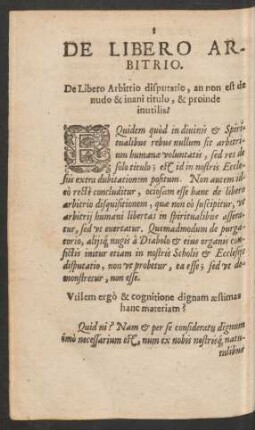 1
DE LIBERO AR-
BITRIO.
De Libero Arbitrio disputatio, an non est de
nudo & inani titulo, & proinde
inutilis?
EQuidem quòd in divinis & Spiri-
tualibus rebus nullum sit arbitri-
um humanæ voluntatis, sed res de
solo titulo; est id in nostris Eccle-
siis extra dubitationem positum. Non autem id-
eò rectè concluditur, ociosam esse hanc de libero
arbitrio disquisitionem, qua non eò suscipitur, ut
arbitrij humani libertas in spiritualibus assera-
tur, sed ut evertatur. Quemadmodum de purga-
torio, alijsq; nugis à Diabolo & eius organis con-
fictis initur etiam in nostris Scholis & Ecclesijs
disputatio, non ut probetur, ea esse; sed ut de-
monstretur, non esse.
Vtilem ergò & cognitione dignam æstimas
hanc materiam?
Quid ni? Nam & per se consideratu dignum
imò necessarium est, num ex nobis nostrisq; natu-
ralibus